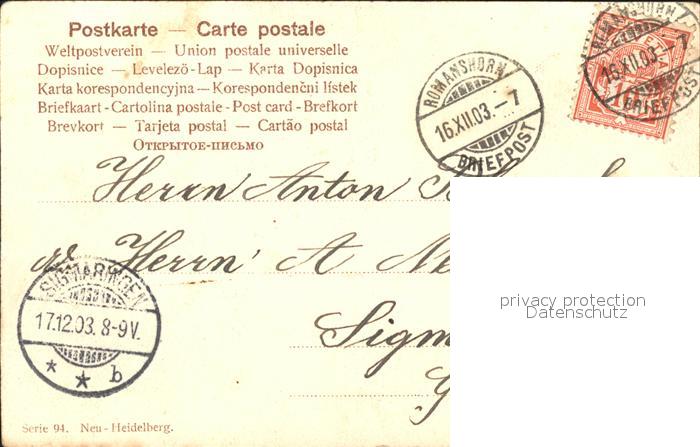 Postkarte — Carte postale
Weltpostverein — Union postale universelle
Dopisnice — Levelező-Lap — Karta Dopisnica
Karta korespondencyjna — Korespondenční lístek
Briefkaart - Cartolina postale - Post card - Brefkort
Brevkort — Tarjeta postal — Cartão postal
Открытое-письмо
ROMANSHORN
16.XII.03.–7
BRIEFPOST
ROMANSHORN
16.XII.03.–7
BRIEFPOST
Herrn Anton
Herrn A
SIGMARINGEN
17.12.03. 8-9V.
* * b
Sigm
privacy protection
Datenschutz
Serie 94. Neu-Heidelberg.